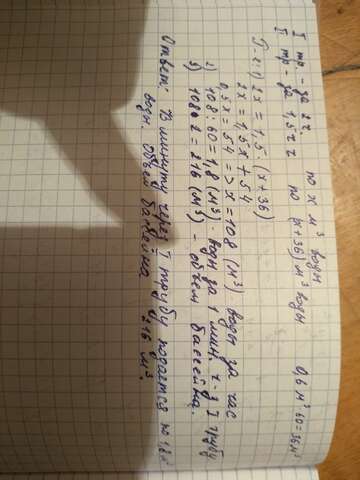 I тр - за 2 ч. по x м³ воды 0,6 м³·60=36 м³
II тр - за 1,5 ч по (x+36) м³ воды
1) 2x = 1,5·(x+36)
2x = 1,5x + 54
0,5x = 54 => x = 108 (м³) воды за час
2) 108 : 60 = 1,8 (м³) - воды за 1 мин. ч-з I трубу
3) 108·2 = 216 (м³) - объем бассейна.
Ответ: В минуту через I трубу подается по 1,8 м³
воды. Объем бассейна 216 м³